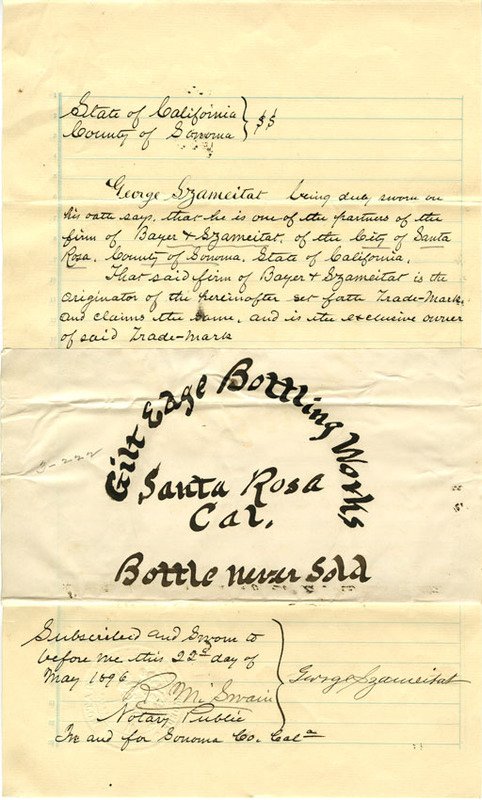 State of California
County of Sonoma } SS
George Szameitat being duly sworn on
his oath says, that he is one of the partners of the
firm of Bayer & Szameitat, of the City of Santa
Rosa, County of Sonoma, State of California.
That said firm of Bayer & Szameitat is the
originator of the hereinafter set forth Trade-Mark,
and claims the same, and is the exclusive owner
of said Trade-Mark
Gilt Edge Bottling Works
Santa Rosa
Cal.
Bottle never Sold
3-222
Subscribed and Sworn to
before me this 22d day of
May 1896
R. M. Swain
Notary Public
In and for Sonoma Co. Cala
George Szameitat